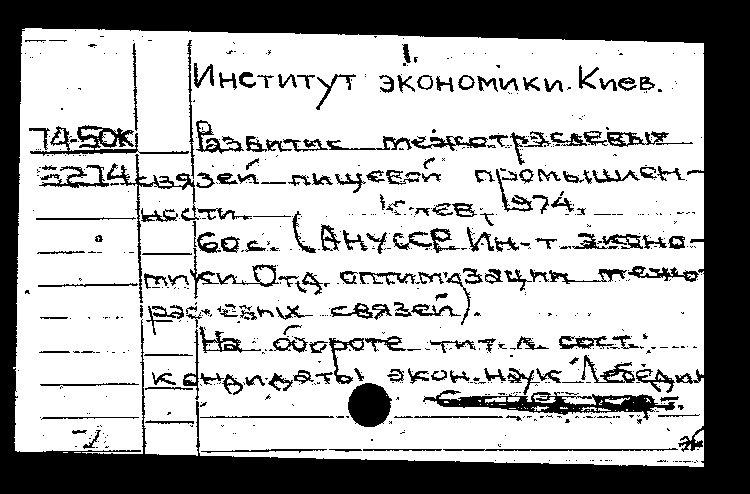 1.
Институт экономики. Киев.
74-50К Развитие межотраслевых
5274 связей пищевой промышлен-
ности. Киев, 1974.
60 с. (АН УССР Ин-т эконо-
мики. Отд. оптимизации межо
раслевых связей).
На обороте тит. л. сост.:
кандидаты экон. наук Лебедин